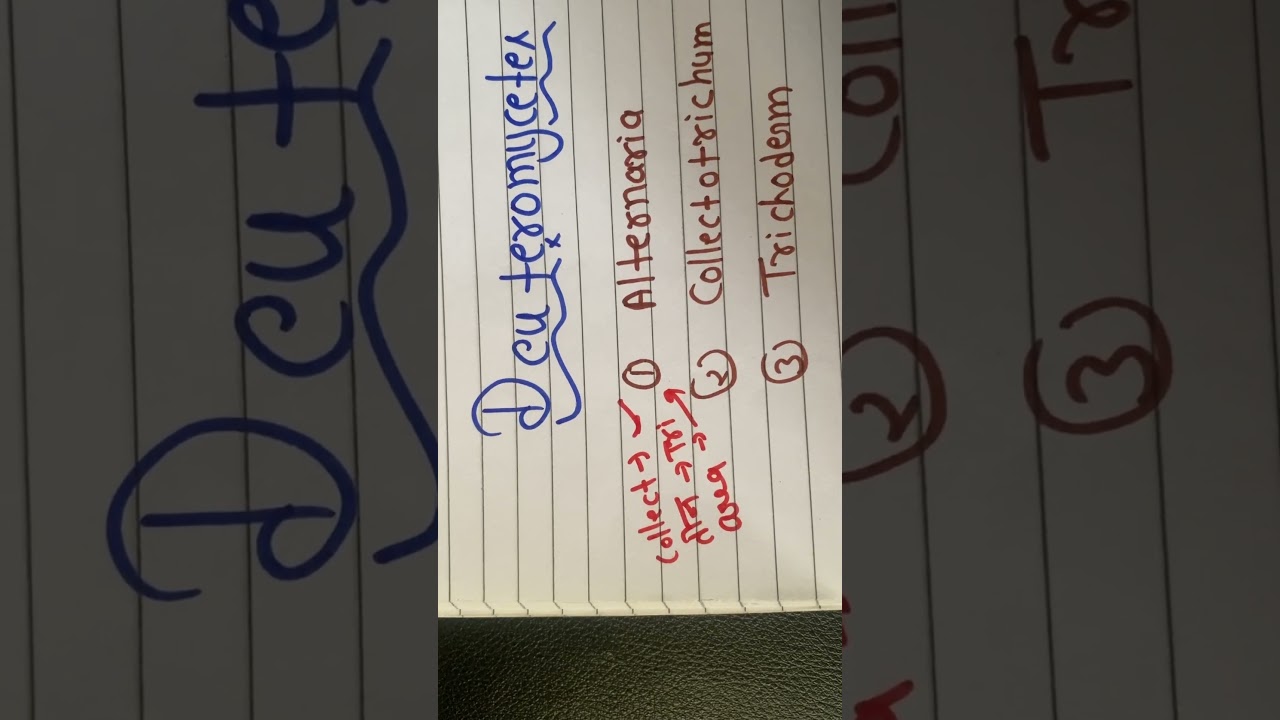 Deuteromycetes
① Alternaria
② Collectotrichum
③ Trichoderm
Collect →
तीन → Tri
area →